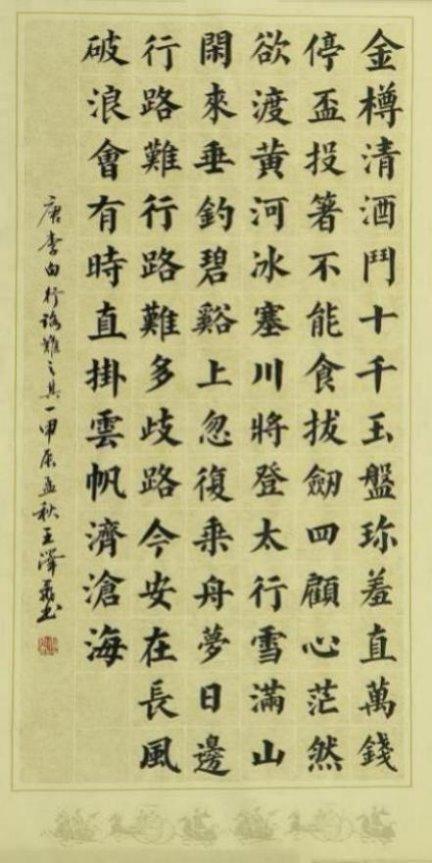 金樽清酒鬥十千玉盤珎羞直萬錢
停盃投箸不能食拔劒四顧心茫然
欲渡黃河冰塞川將登太行雪滿山
閑來垂釣碧谿上忽復乗舟夢日邊
行路難行路難多歧路今安在長風
破浪會有時直掛雲帆濟滄海
唐李白行路難之其一甲辰孟秋王澤書